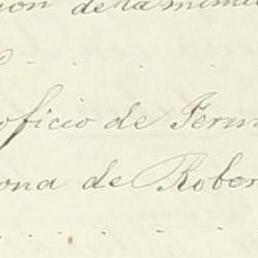 ion de la mim
oficio de Ferm
ona de Rober